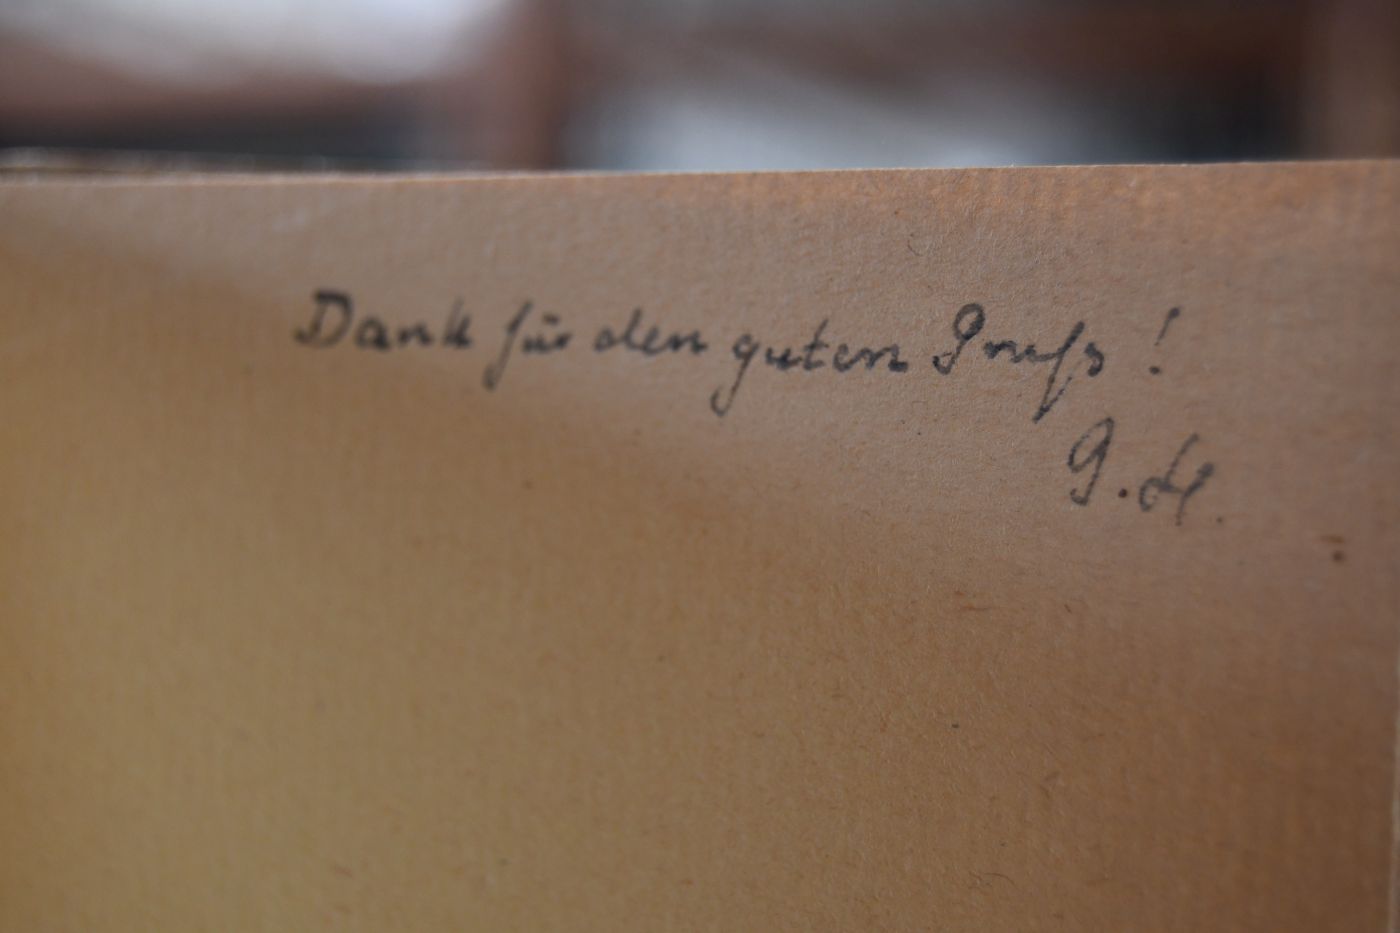 Dank für den guten Gruß!
G. H.